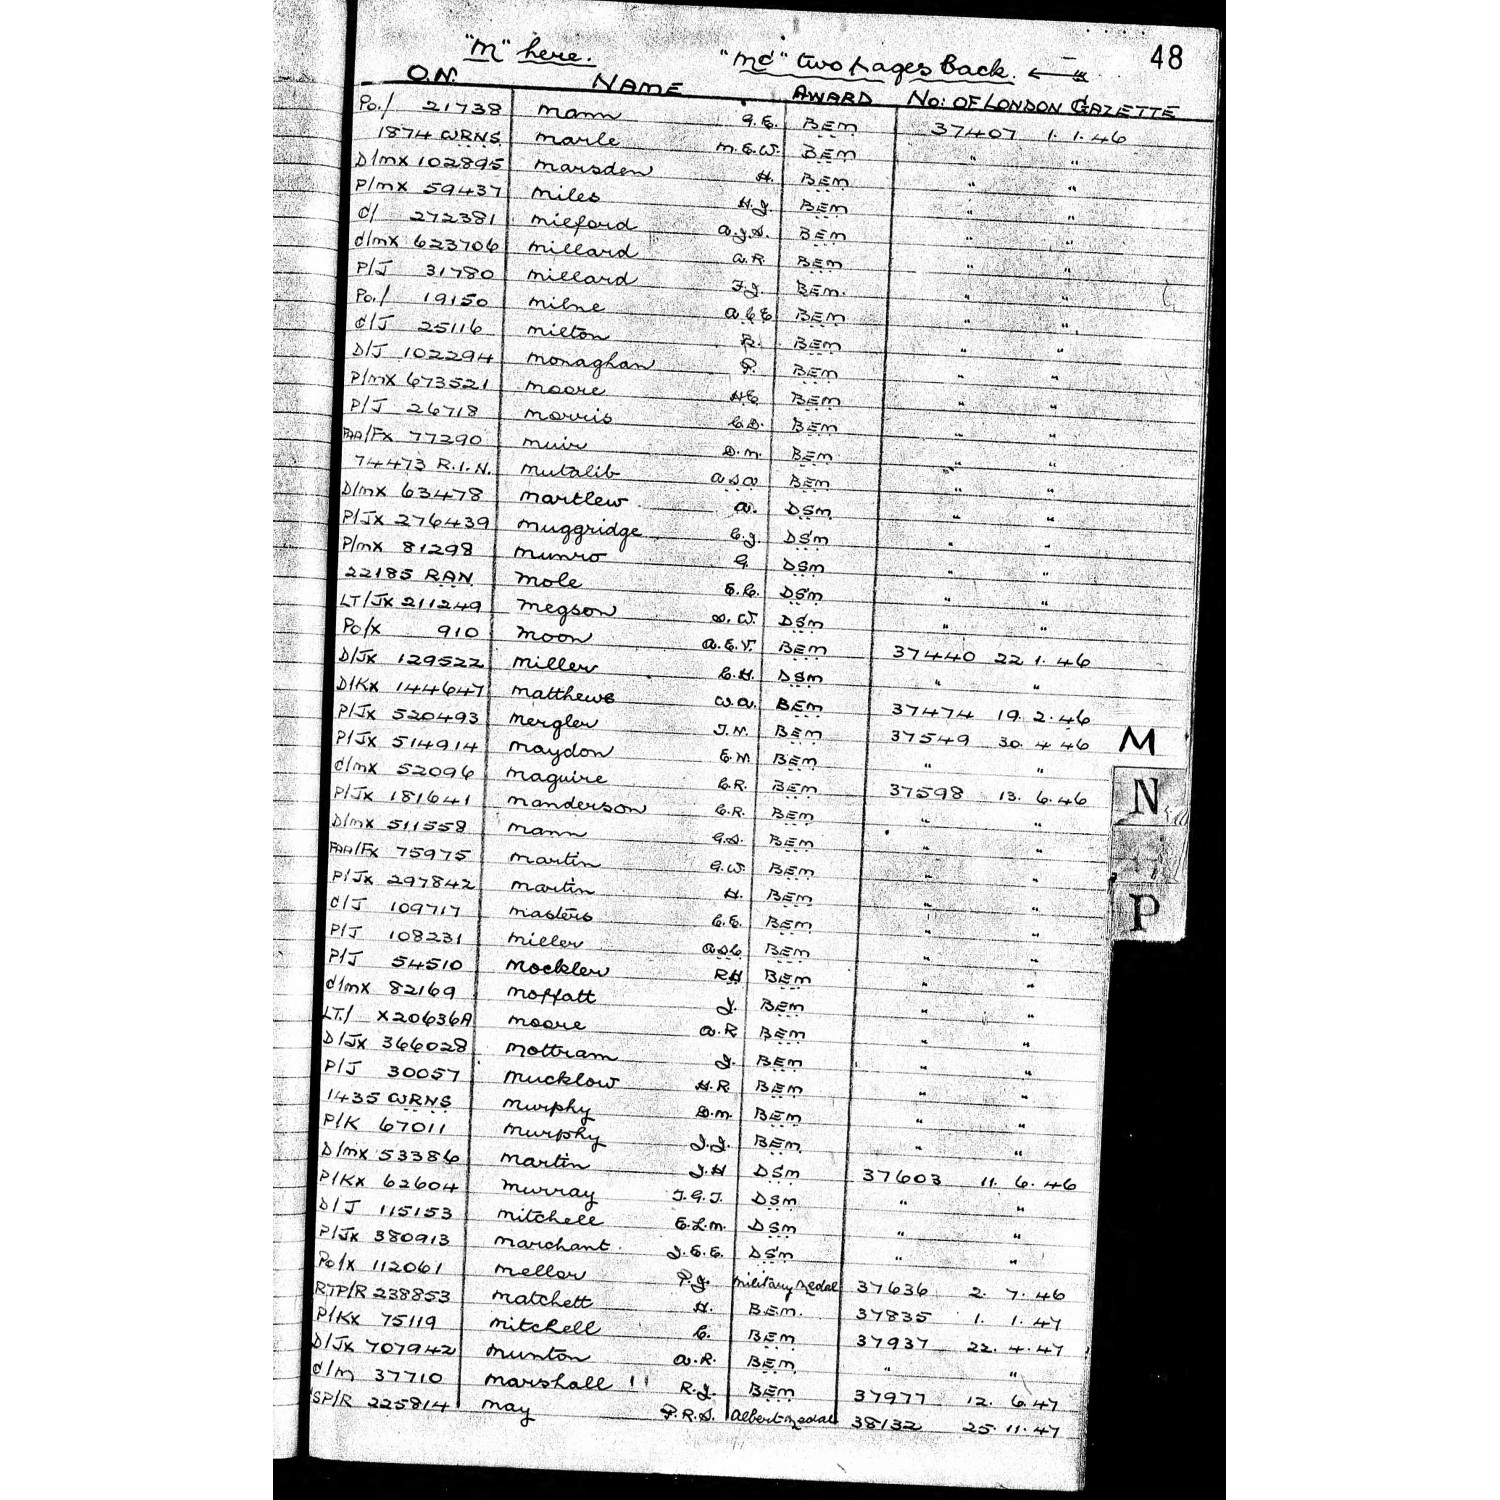 48
"M" here. "Mc" two pages Back. ←
O.N. NAME AWARD No: OF LONDON GAZETTE
Po./ 21738 Mann G.E. BEM 37407 1.1.46
1874 WRNS Marle M.E.W. BEM " "
D/MX 102895 Marsden H. BEM " "
P/MX 59437 Miles H.J. BEM " "
C/ 272381 Milford A.J.S. BEM " "
C/MX 623706 Millard A.R. BEM " "
P/J 31780 Millard F.J. BEM. " "
Po./ 19150 Milne A.C.E BEM " "
C/J 25116 Milton R. BEM " "
D/J 102294 Monaghan P. BEM " "
P/MX 673521 Moore H.E BEM " "
P/J 26718 Morris C.D. BEM " "
FAA/FX 77290 Muir D.M. BEM " "
74473 R.I.N. Mutalib A.S.A BEM " "
D/MX 63478 Martlew A. DSM " "
P/JX 276439 Muggridge C.J. DSM " "
P/MX 81298 Munro G. DSM " "
22185 RAN Mole E.C. DSM " "
LT/JX 211249 Megson S.W. DSM " "
Po/X 910 Moon A.E.V. BEM 37440 22.1.46
D/JX 129522 Miller C.H. DSM " "
D/KX 144647 Matthews W.A. BEM 37474 19.2.46
P/JX 520493 Mergler J.N. BEM 37549 30.4.46
P/JX 514914 Maydon E.M BEM " "
C/MX 52096 Maguire C.R. BEM 37598 13.6.46
P/JX 181641 Manderson C.R. BEM " "
D/MX 511558 Mann G.S. BEM " "
FAA/FX 75975 Martin G.W. BEM " "
P/JX 297842 Martin H. BEM " "
C/J 109717 Masters C.E. BEM " "
P/J 108231 Miller A.S.C BEM " "
P/J 54510 Mockler R.H BEM " "
C/MX 82169 Moffatt J. BEM " "
LT./ X20636A Moore A.R BEM " "
D/JX 366028 Mottram J. BEM " "
P/J 30057 Mucklow H.R BEM " "
1435 WRNS Murphy D.M. BEM " "
P/K 67011 Murphy J.J. BEM " "
D/MX 53386 Martin J.H DSM 37603 11.6.46
P/KX 62604 Murray T.G.T. DSM " "
D/J 115153 Mitchell E.L.M. DSM " "
P/JX 380913 Marchant. J.E.E. DSM " "
Po/X 112061 Mellor P.J. Military Medal 37636 2.7.46
RTP/R 238853 Matchett H. B.E.M. 37835 1.1.47
P/KX 75119 Mitchell C. BEM 37937 22.4.47
D/JX 707942 Munton A.R. BEM " "
C/M 37710 Marshall !! R.J. BEM 37977 12.6.47
SP/R 225814 May P.R.S. Albert Medal 38132 25.11.47
M
N
P